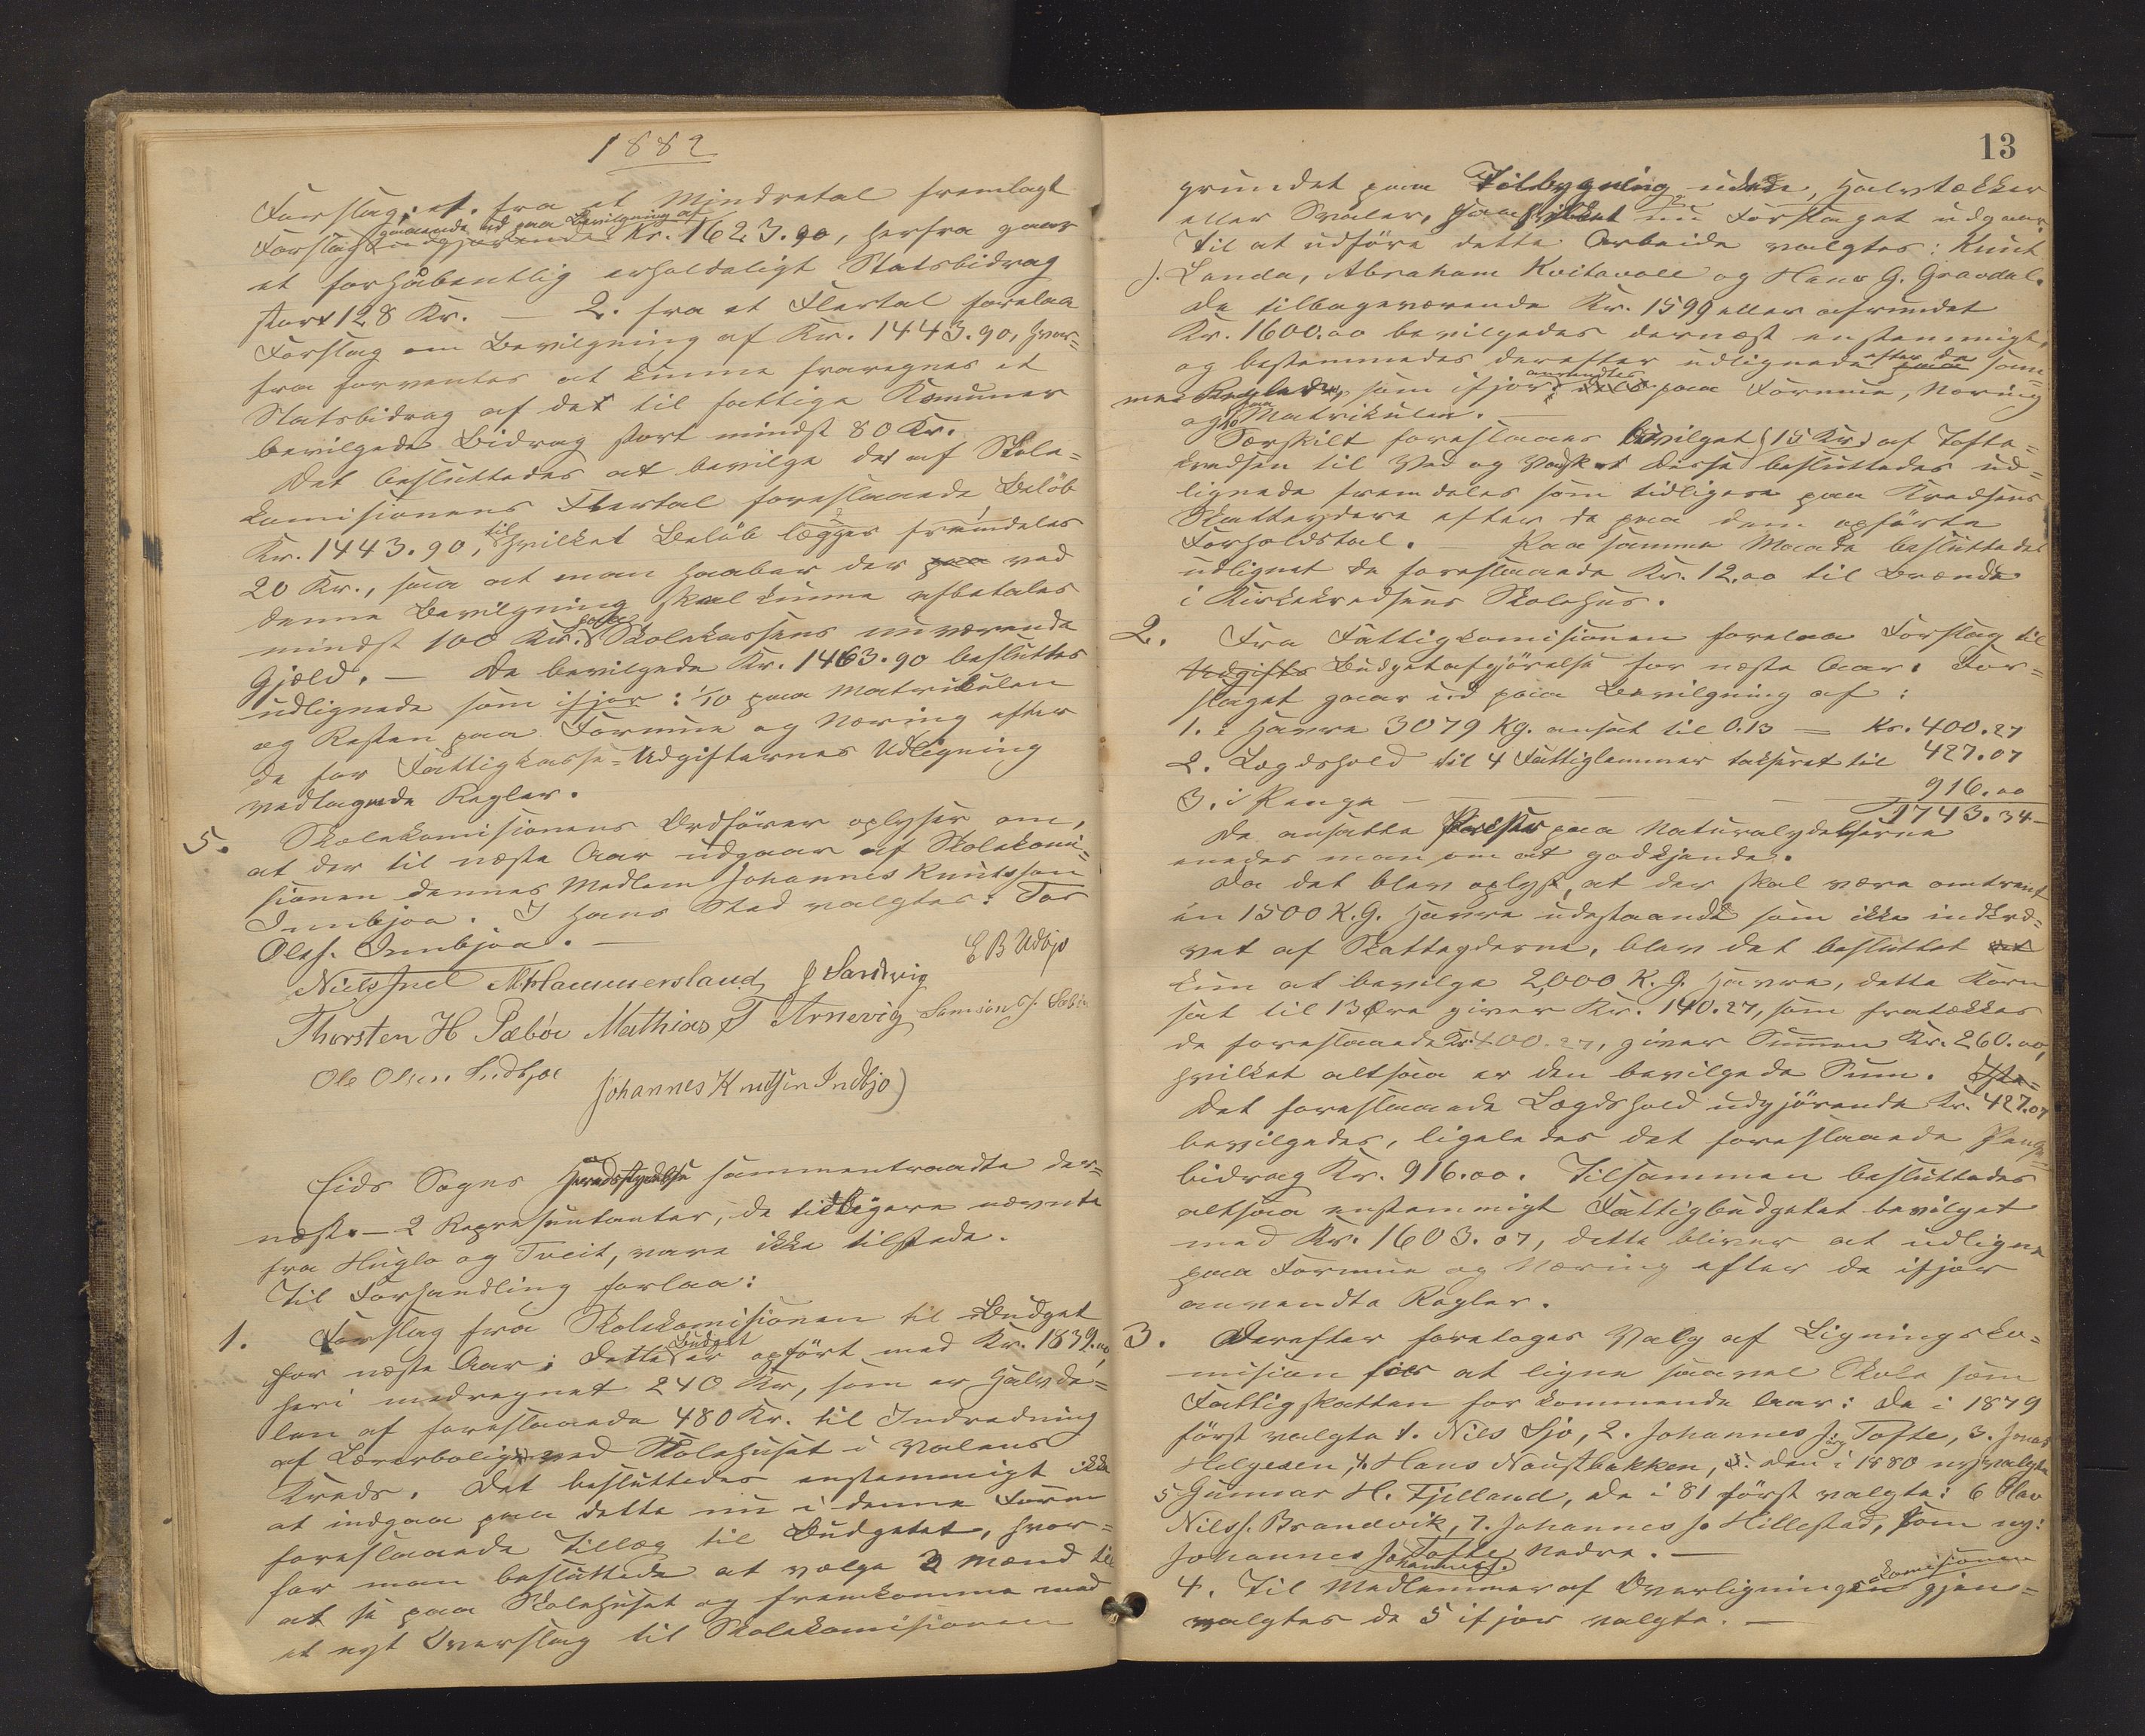 1882
Forslag: et. fra et Mindretal fremlagt
gaaende ud paa Bevilgning af
Forslag udgjørende Kr. 1623.90, herfra gaar
et forhåbentlig erholdeligt Statsbidrag
stort 128 Kr. — 2. fra et Flertal forelaa
Forslag om Bevilgning af Kr. 1443.90, hvor=
fra forventes at kunne fraregnes et
Statsbidrag af det til fattige Komuner
bevilgede Bidrag stort mindst 80 Kr.
Det besluttedes at bevilge det af Skole=
komisionens Flertal foreslaaede Beløb
Kr. 1443.90, til hvilket Beløb lægges fremdeles
20 Kr., saa at man haaber der paa ved
denne Bevilgning skal kunne afbetales
mindst 100 Kr. paa Skolekassens nuværende
Gjæld. — De bevilgede Kr. 1463.90 besluttes
udlignede som ifjor: 1/10 paa Matrikulen
og Resten paa Formue og Næring efter
de for Fattigkasse=Udgifternes Udligning
vedtagede Regler.
5. Skolekomisionens Ordfører oplyser om,
at der til næste Aar udgaar af Skolekomi=
sionen dennes Medlem Johannes Knutsson
Innbjoa. I hans Sted valgtes: Tor
Olsf. Innbjoa. —
Niels Juel M Hammersland J Sandvig E B Udbjo
Thorsten H Sæbøe Mathias T Arnevig Samson J. Sæbø
Ole Olsen Indbjoe Johannes Knutsen Indbjo
Eids Sogns Heredsstyrelse sammentraadte der=
næst. — 2 Repræsentanter, de tidligere nævnte
fra Huglo og Tveit, vare ikke tilstede.
Til Forhandling forlaa:
1. Forslag fra Skolekomisionen til Budget
for næste Aar; dette Budget er opført med Kr. 1839.00,
heri medregnet 240 Kr, som er Halvde=
len af foreslaaede 480 Kr. til Indredning
af Lærerbolig ved Skolehuset i Valens
Kreds. Det besluttedes enstemmigt ikke
at indgaa paa dette nu i denne Form
foreslaaede Tillæg til Budgetet, hvor=
for man besluttede at vælge 3 Mænd til
at se paa Skolehuset og fremkomme med
et nyt Overslag til Skolekomisionen
13
grundet paa Tilbygning udade, Halvtækker
eller Svaler, paa hvilket nu Forslaget udgaar.
Til at udføre dette Arbeide valgtes: Knut
J. Landa, Abraham Kvitavoll og Hans G. Gravdal.
De tilbageværende Kr. 1599 eller afrundet
Kr. 1600.00 bevilgedes dernæst enstemmigt,
og bestemmedes derefter udlignede efter de sam=
me Regler, som ifjor anvendtes paa Formue, Næring
og paa Matrikulen. —
Særskilt foreslaaes bevilget (15 Kr.) af Tofte=
kredsen til Ved og Vadsk. Disse besluttedes ud=
lignede fremdeles som tidligere paa Kredsens
Skatteydere efter de paa dem opførte
Forholdstal. — Paa samme Maade besluttedes
udlignet de foreslaaede Kr. 12.00 til Brænde
i Kirkekredsens Skolehus.
2. Fra Fattigkomisionen forelaa Forslag til
Udgifts Budgetafgjørelse for næste Aar. For=
slaget gaar ud paa Bevilgning af:
1. i Havre 3079 Kg. ansat til 0.13 — Kr. 400.27
2. Lægdshold til 4 Fattiglemmer takseret til 427.07
3. i Penge — — — — 916.00
1743.34
De ansatte Priser paa Naturalydelserne
enedes man om at godkjende.
Da det blev oplyst, at der skal være omtrent
en 1500 K.G. Havre udestaande som ikke indkræ=
vet af Skatteyderne, blev det besluttet at
kun at bevilge 2,000 K.G. Havre, dette Korn
sat til 13 Øre giver Kr. 140.27, som fratækkes
de foreslaaede Kr. 400.27, giver Summen Kr. 260.00,
hvilket altsaa er den bevilgede Sum.
Det foreslaaede Lægdshold udgjørende Kr. 427.07
bevilgedes, ligeledes det foreslaaede Penge=
bidrag Kr. 916.00. Tilsammen besluttedes
altsaa enstemmigt Fattigbudgetet bevilget
med Kr. 1603.07, dette bliver at udligne
paa Formue og Næring efter de ifjor
anvendte Regler.
3. Derefter foretoges Valg af Ligningsko=
mision for at ligne saavel Skole som
Fattigskatten for kommende Aar: De i 1879
først valgte 1. Nils Sjo, 2. Johannes J. Tofte, 3. Jonas
Helgesen, 4. Hans Naustbakken, den i 1880 nyvalgte
5 Gunnar H. Fjelland, de i 81 først valgte: 6 Olav
Nilsf. Brandvik, 7. Johannes J. Hillestad, som ny:
Johannes Johannesf. Tofte nedre. —
4. Til Medlemmer af Overligningskomisionen gjen=
valgtes de 5 ifjor valgte. —